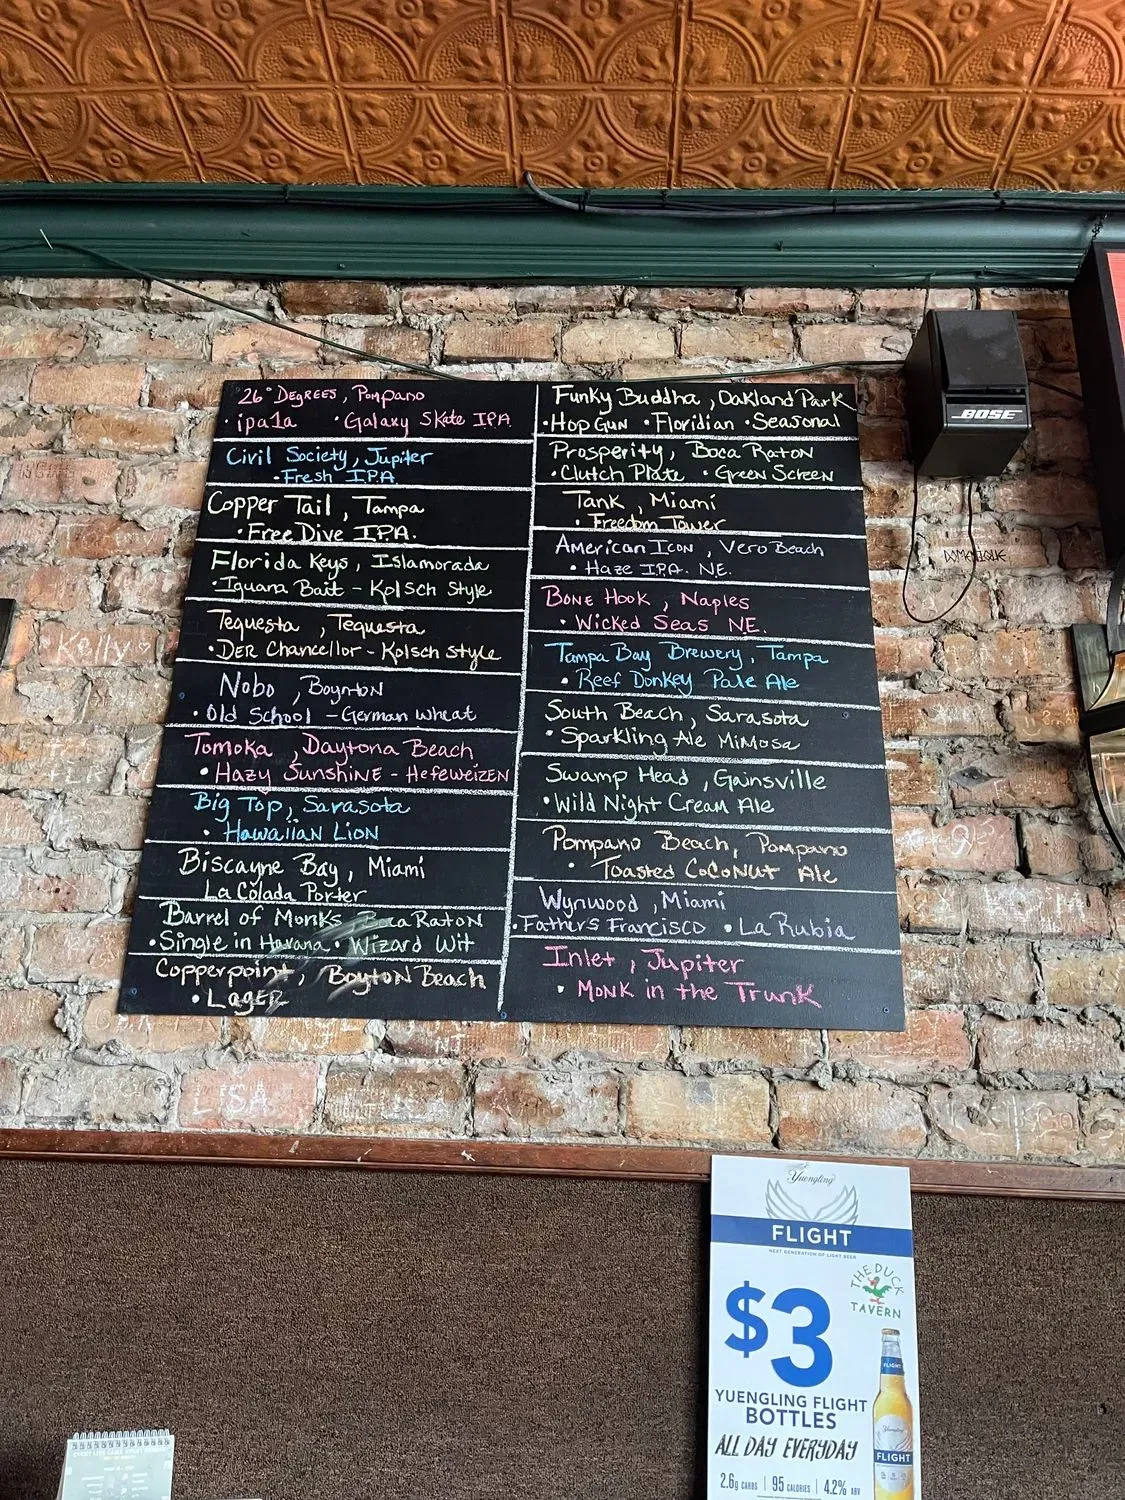 26° Degrees, Pompano
· ipa1a · Galaxy Skate IPA
Civil Society, Jupiter
· Fresh IPA
Copper Tail, Tampa
· Free Dive IPA.
Florida Keys, Islamorada
· Iguana Bait - Kolsch Style
Tequesta, Tequesta
· Der Chancellor - Kolsch Style
Nobo, Boynton
· Old School - German Wheat
Tomoka, Daytona Beach
· Hazy Sunshine - Hefeweizen
Big Top, Sarasota
· Hawaiian Lion
Biscayne Bay, Miami
La Colada Porter
Barrel of Monks Boca Raton
· Single in Havana · Wizard Wit
Copperpoint, Boyton Beach
· Lager
Funky Buddha, Oakland Park
· Hop Gun · Floridian · Seasonal
Prosperity, Boca Raton
· Clutch Plate · Green Screen
Tank, Miami
· Freedom Tower
American Icon, Vero Beach
· Haze IPA. NE.
Bone Hook, Naples
· Wicked Seas NE.
Tampa Bay Brewery, Tampa
· Reef Donkey Pale Ale
South Beach, Sarasota
· Sparkling Ale Mimosa
Swamp Head, Gainsville
· Wild Night Cream Ale
Pompano Beach, Pompano
· Toasted Coconut Ale
Wynwood, Miami
· Fathers Francisco · La Rubia
Inlet, Jupiter
· Monk in the Trunk
BOSE
DOMENIQUE
Kelly
LISA
Yuengling
FLIGHT
NEXT GENERATION OF LIGHT BEER
THE DUCK
TAVERN
$3
YUENGLING FLIGHT
BOTTLES
ALL DAY EVERYDAY
2.6g CARBS | 95 CALORIES | 4.2% ABV
FLIGHT
Yuengling
FLIGHT